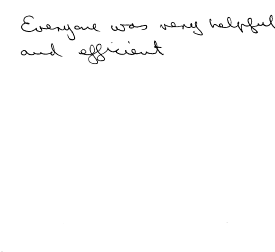 Everyone was very helpful
and efficient